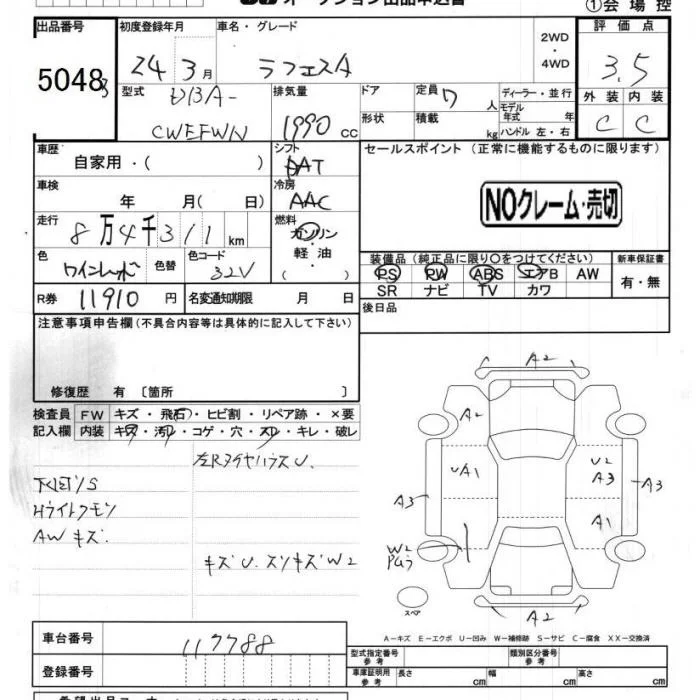 オークション出品申込書
①会場控
出品番号 初度登録年月 車名・グレード 2WD・4WD 評価点
50483 24 3月 ラフェスタ 3.5
型式 DBA-CWEFWN
排気量 1990 cc
ドア 定員 7 人 ディーラー・並行
形状 積載 kg モデル年式 年
ハンドル 左・右
外装 内装
C C
車歴 自家用・( )
シフト DAT
車検 年 月( 日)
冷房 AAC
走行 8万4千311km
燃料 ガソリン・軽油・( )
色 ワインレッド 色替 色コード 32V
R券 11910円 名変通知期限 月 日
セールスポイント(正常に機能するものに限ります)
NOクレーム・売切
装備品(純正品に限り○をつけてください) 新車保証書
PS PW ABS エアB AW 有・無
SR ナビ TV カワ
後日品
注意事項申告欄(不具合内容等は具体的に記入して下さい)
修復歴 有〔箇所 〕
検査員 FW キズ・飛石・ヒビ割・リペア跡・×要
記入欄 内装 キズ・汚れ・コゲ・穴・スレ・キレ・破レ
左RタイヤハウスU.
下廻りS
Hライトクモリ
AWキズ.
キズU.スリキズW2
A2
A2
UA1 U2 A3
A3 A3
A1
W2
A2
スペア
A−キズ E−エクボ U−凹み W−補修跡 S−サビ C−腐食 XX−交換済
車台番号 117788
登録番号
型式指定番号 参考 類別区分番号 参考
車庫証明用 参考 長さ cm 幅 cm 高さ cm
希望出品コーナー